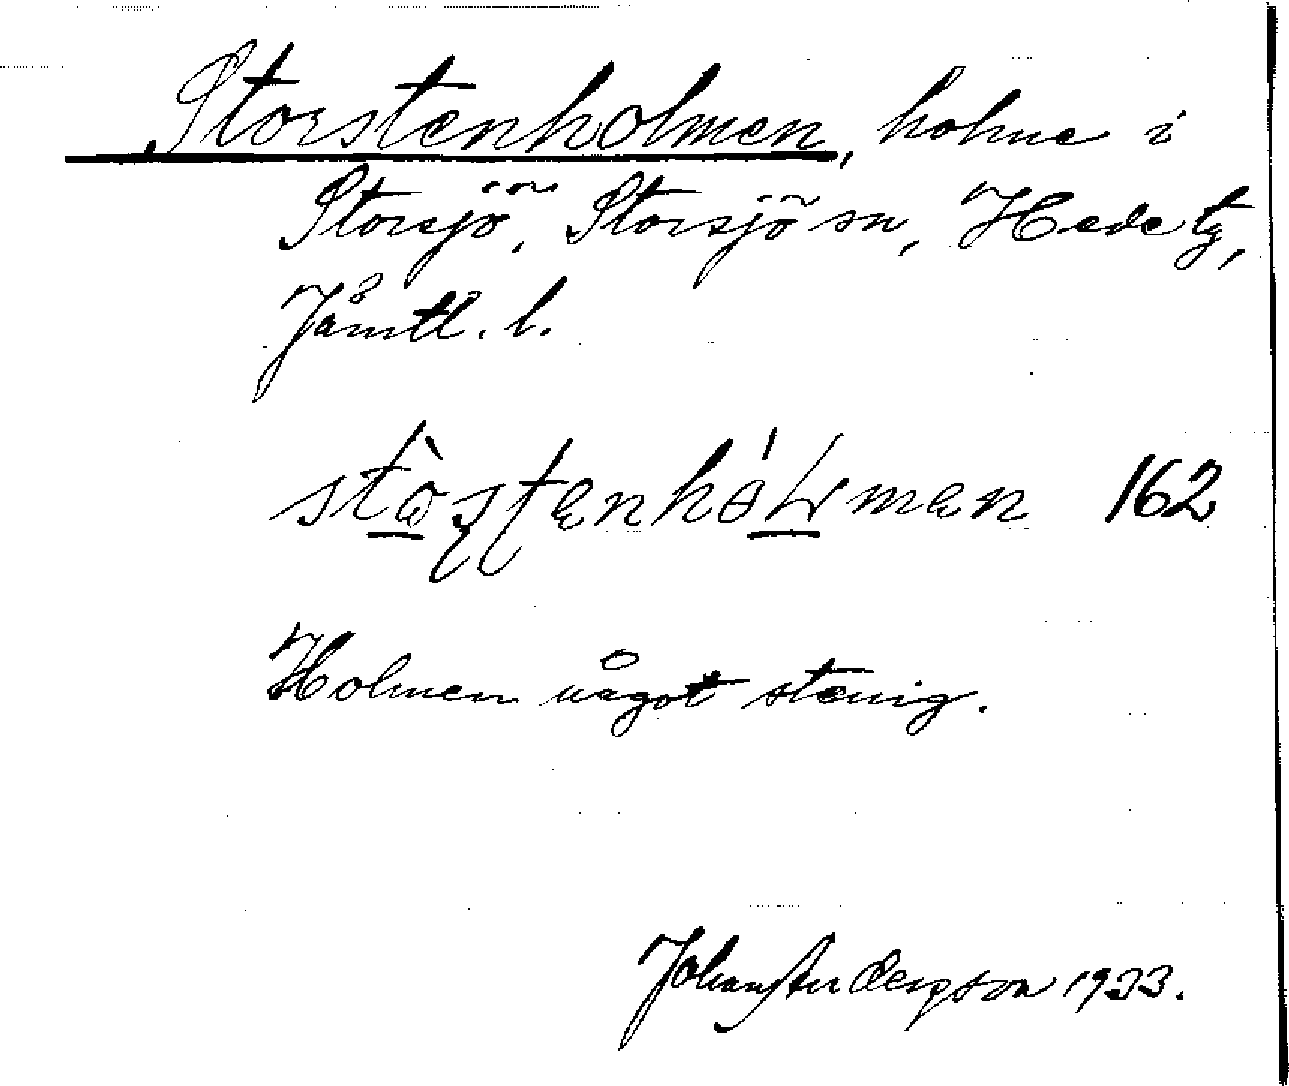 Storstenholmen, holme i
Storsjö, Storsjö sn, Hede tg,
Jämtl. l.
162
Holmen något stenig.
Johan Anderpson 1933.